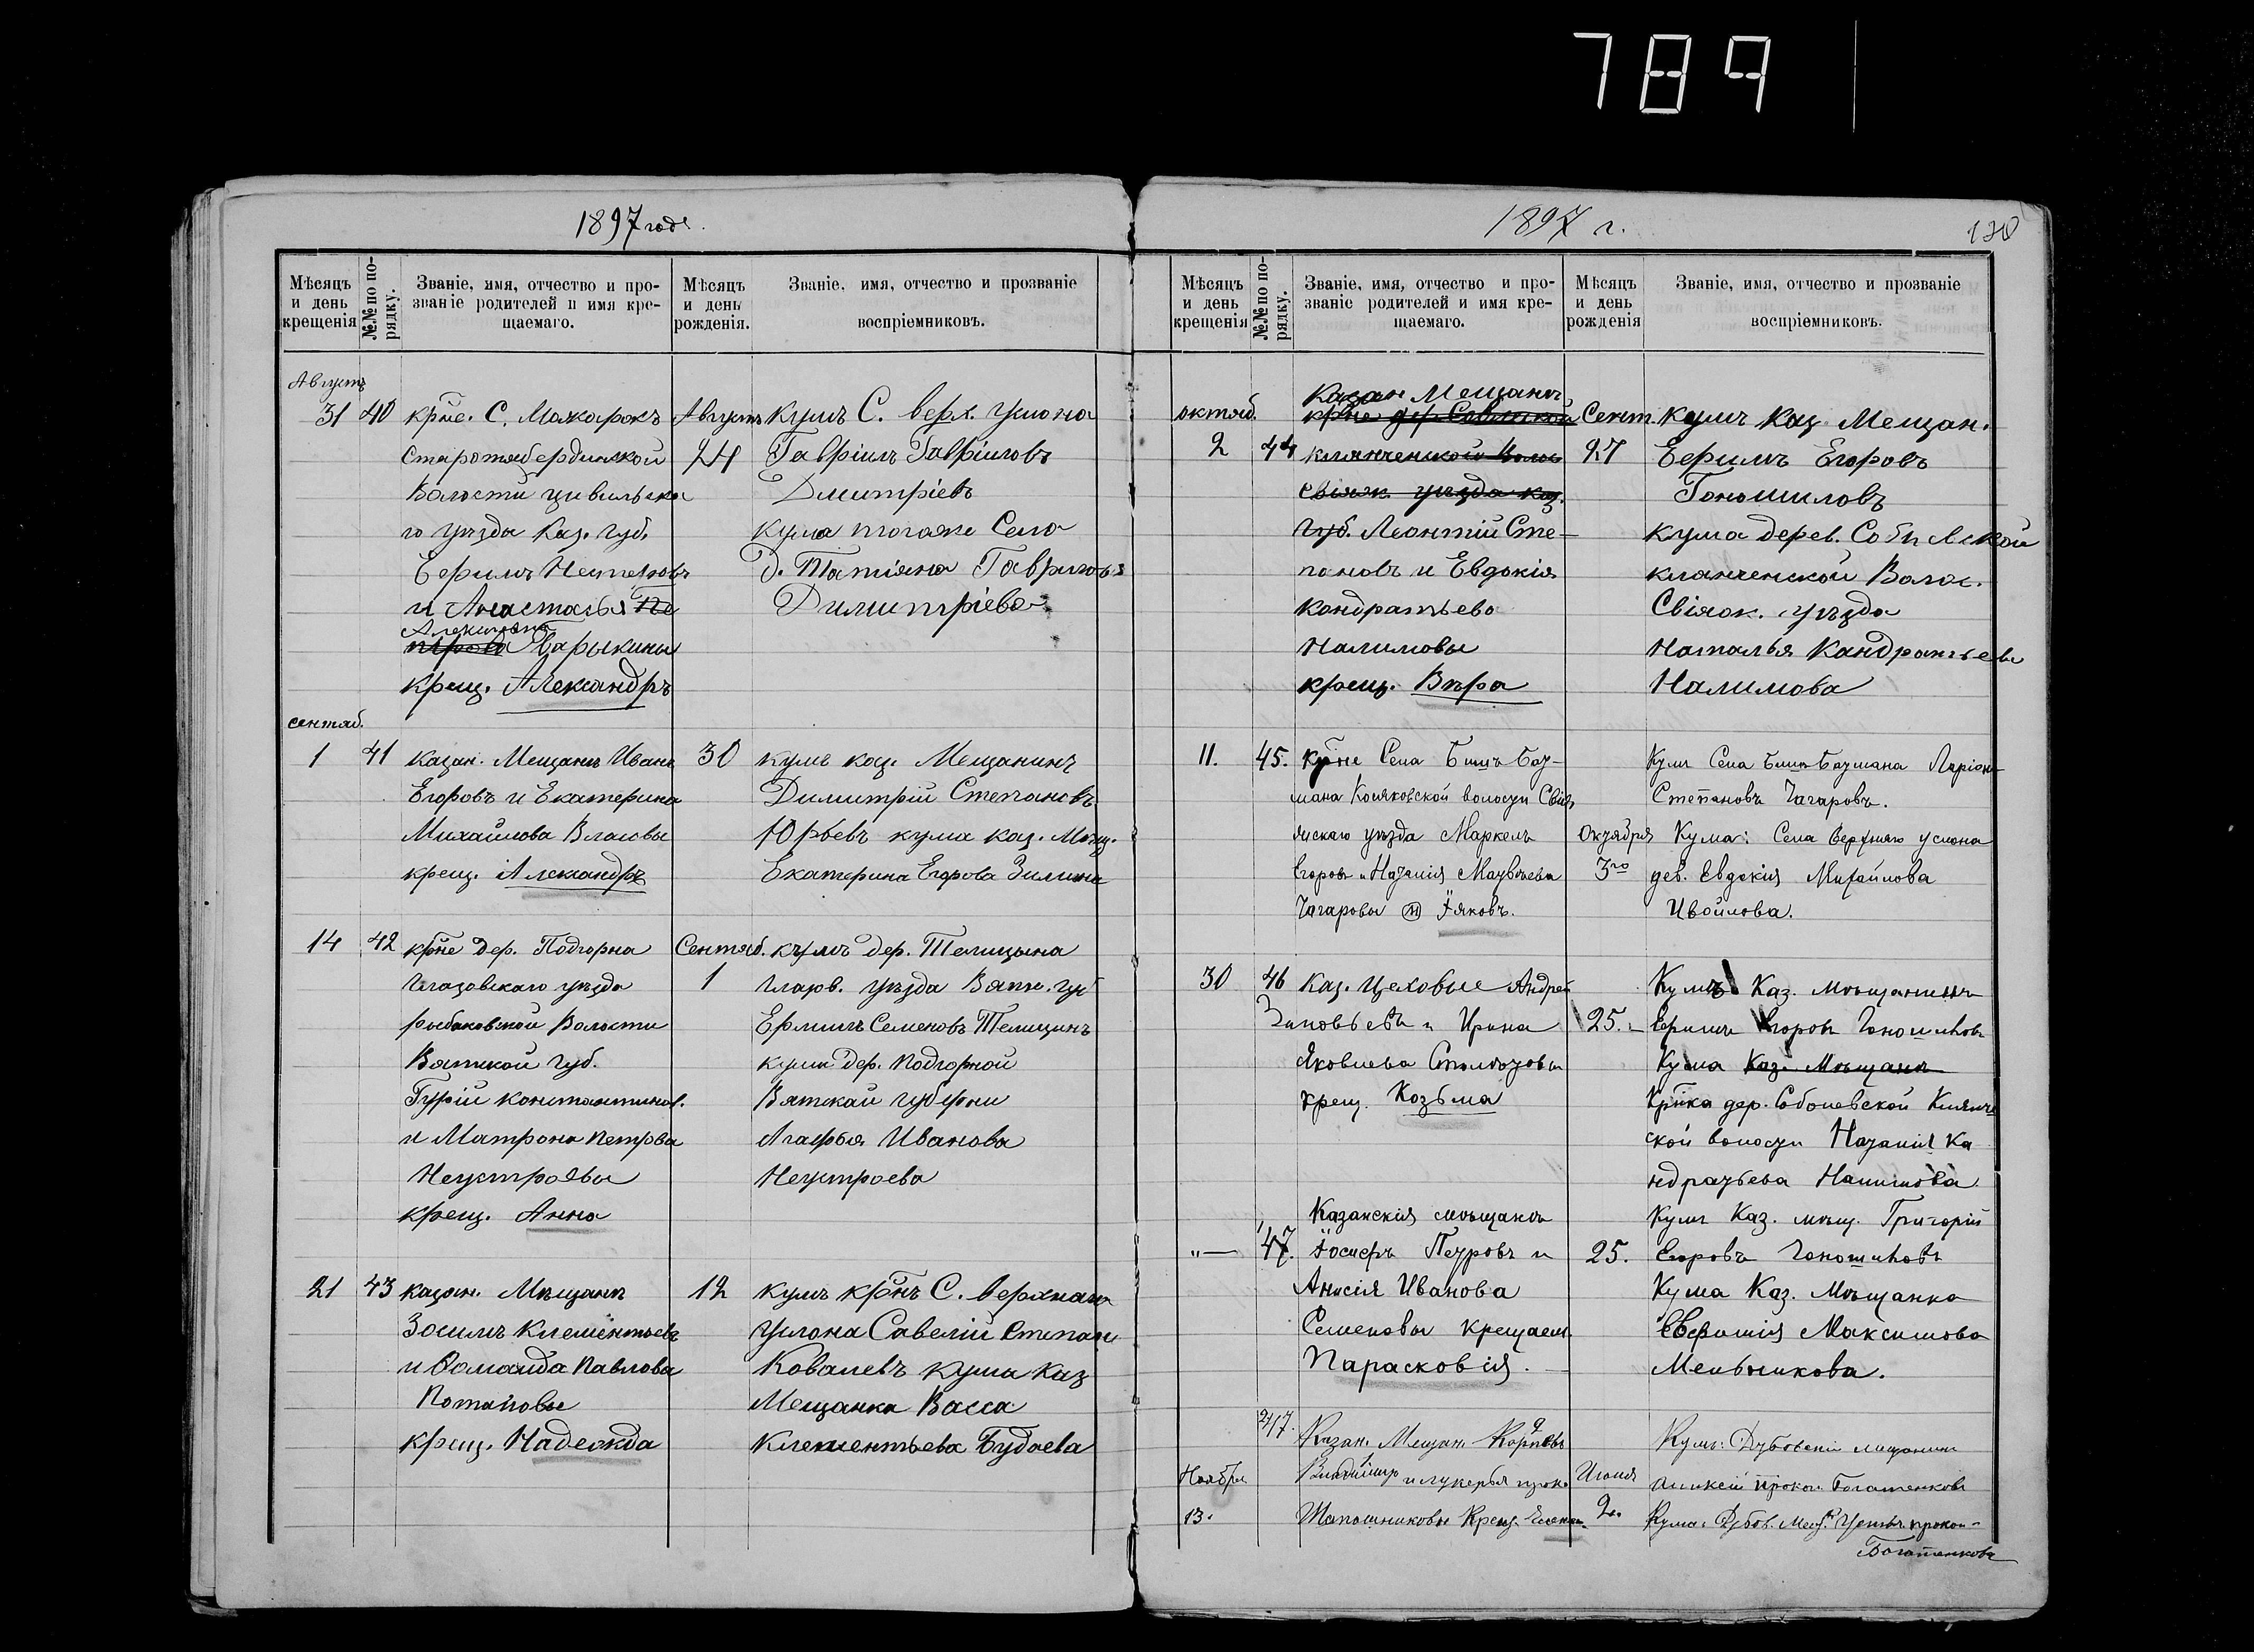 789
1897 года.
Мѣсяцъ и день крещенія
№№ по порядку.
Званіе, имя, отчество и прозваніе родителей и имя крещаемаго.
Мѣсяцъ и день рожденія.
Званіе, имя, отчество и прозваніе воспріемниковъ.
Августъ
31 40
крн̃е. С. Мажарокъ
старотябердинской
Волости цивильска
го уѣзда Каз. Губ.
Ефимъ Нестеровъ
и Анастасья Пе
Алексѣева
трова Барыкины
крещ. Александръ
Августъ
24
Кумъ С. верх. Услона
Гавріилъ Гавріиловъ
Дмитріевъ
кума тогоже Села
д. Татіяна Гаврилова
Димитріева
сентяб.
1 41
казан. Мещане Иванъ
Егоровъ и Екатерина
Михайлова Власовы
крещ. Александръ
30
кумъ каз. Мещанинъ
Димитрій Степановъ
Юрьевъ кума каз. Мѣщ.
Екатерина Егорова Зилина
14 42
крн̃е дер. Подгорна
Глазовскаго уѣзда
рыбаковской Волости
Вятской Губ.
Гурій Константинов.
и Матрона Петрова
Неустроевы
крещ. Анна
Сентяб.
1
кумъ дер. Телицына
Глазов. уѣзда Вятк. Губ
Ермилъ Семеновъ Телицинъ
кума дер. Подгорной
Вятскай губерни
Агафья Иванова
Неустроева
21 43
казан. Мѣщане
Зосимъ Клементьевъ
и Фомаида Павлова
Потаповы
крещ. Надежда
12
кумъ крн̃ъ С. верхнаго
Услона Савелій Степан
Ковалевъ кума Каз
Мещанка Васса
Клементьева Будаева
1897 г.
130
Мѣсяцъ и день крещенія
№№ по порядку.
Званіе, имя, отчество и прозваніе родителей и имя крещаемаго.
Мѣсяцъ и день рожденія
Званіе, имя, отчество и прозваніе воспріемниковъ.
октяб.
2 44
Казан Мещане
крн̃е дер. Соболевской
клянченской Волос
свіяж. уѣзда каз.
Губ. Леонтій Сте-
пановъ и Евдокія
Кондратьева
Налимовы
крещ. Вѣра
Сент.
27
кумъ Каз. Мещан.
Ефимъ Егоровъ
Гоношиловъ
кума дерев.
клянченской Волос.
Свіяж. уѣзда
Наталья Кандратьева
Налимова
11. 45.
крн̃е Села Бишъ Бат-
мана Косяковской волости Свія
жскаго уѣзда Маркелъ
Егоровъ и Наталія Матвѣева
Чагаровы Іяковъ.
Октября
3го
Кумъ Села Бишъ-Батмана Ларіонъ
Степановъ Чагаровъ.
Кума: Села Верхняго Услона
дев. Евдокія Михайлова
Ивойлова.
30 46
Каз. Цеховые Андрей
Зиновьевъ и Ирина
Яковлева
крещ. Козьма
25.
Кумъ Каз. мѣщанинъ
Ефимъ Егоровъ Гоношиловъ
Кума Каз. Мѣщанк
Крн̃ка дер. Соболевской Клянче
ской волости Наталія Ка
ндратьева Налимова
"— 47.
Казанскія мѣщане
Іосифъ Петровъ и
Анисія Иванова
Семеновы крещаем.
Парасковія.
25.
Кумъ Каз. мѣщ. Григорій
Егоровъ Гоношиловъ
Кума Каз. Мѣщанка
Евфимія Максимова
Мельникова.
Ноября
13.
Казан. Мещан.
Владиміръ и Лукерья
Шапошниковы Крещ. Елена
Июня
2.
Кумъ: Дубовскій мещанинъ
Алексѣй Прокоп. Богатенковъ
Кума: Дубов. Мещ. прокоп-
Богатенкова